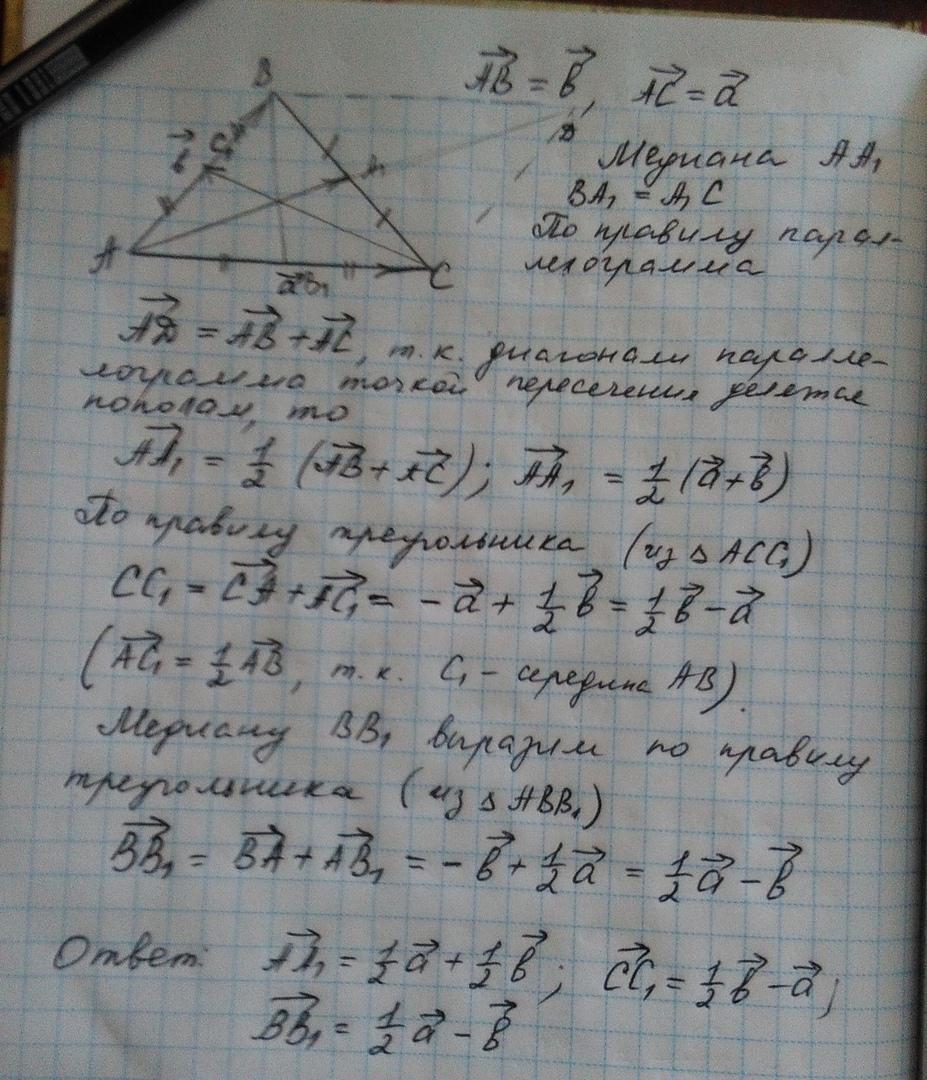 B
AB = b, AC = a
D
b
C₁
A₁
Медиана AA₁
BA₁ = A₁C
По правилу парал-
лелограмма
A
C
a
B₁
AD = AB + AC, т.к. диагонали паралле-
лограмма точкой пересечения делятся
пополам, то
AA₁ = 1/2 (AB + AC); AA₁ = 1/2 (a + b)
По правилу треугольника (из △ ACC₁)
CC₁ = CA + AC₁ = - a + 1/2 b = 1/2 b - a
(AC₁ = 1/2 AB, т.к. C₁ - середина AB).
Медиану BB₁ выразим по правилу
треугольника (из △ ABB₁)
BB₁ = BA + AB₁ = - b + 1/2 a = 1/2 a - b
Ответ: AA₁ = 1/2 a + 1/2 b; CC₁ = 1/2 b - a;
BB₁ = 1/2 a - b